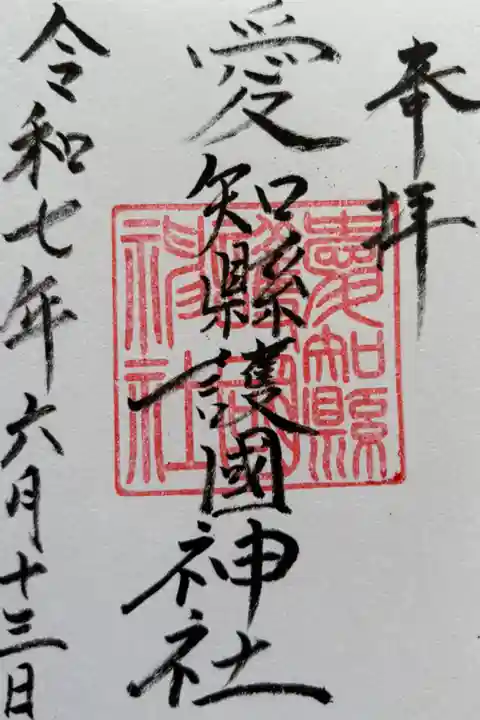 奉拝
愛知縣護國神社
愛知縣
護國
神社
令和七年六月十三日